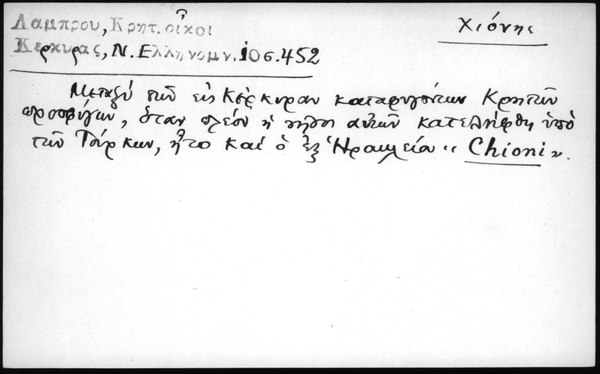 Λαμπρου, Κρητ. οἶκοι
Χιόνης
Κερκυρας, Ν. Ελληνομν. 10 σ. 452
Μεταξύ τῶν εἰς Κέρκυραν καταφυγόντων Κρητῶν
προσφύγων, ὅταν πλέον ἡ νῆσος αὐτῶν κατελήφθη ὑπό
τῶν Τούρκων, ἦτο καί ὁ ἐξ Ἡρακλείου « Chioni ».